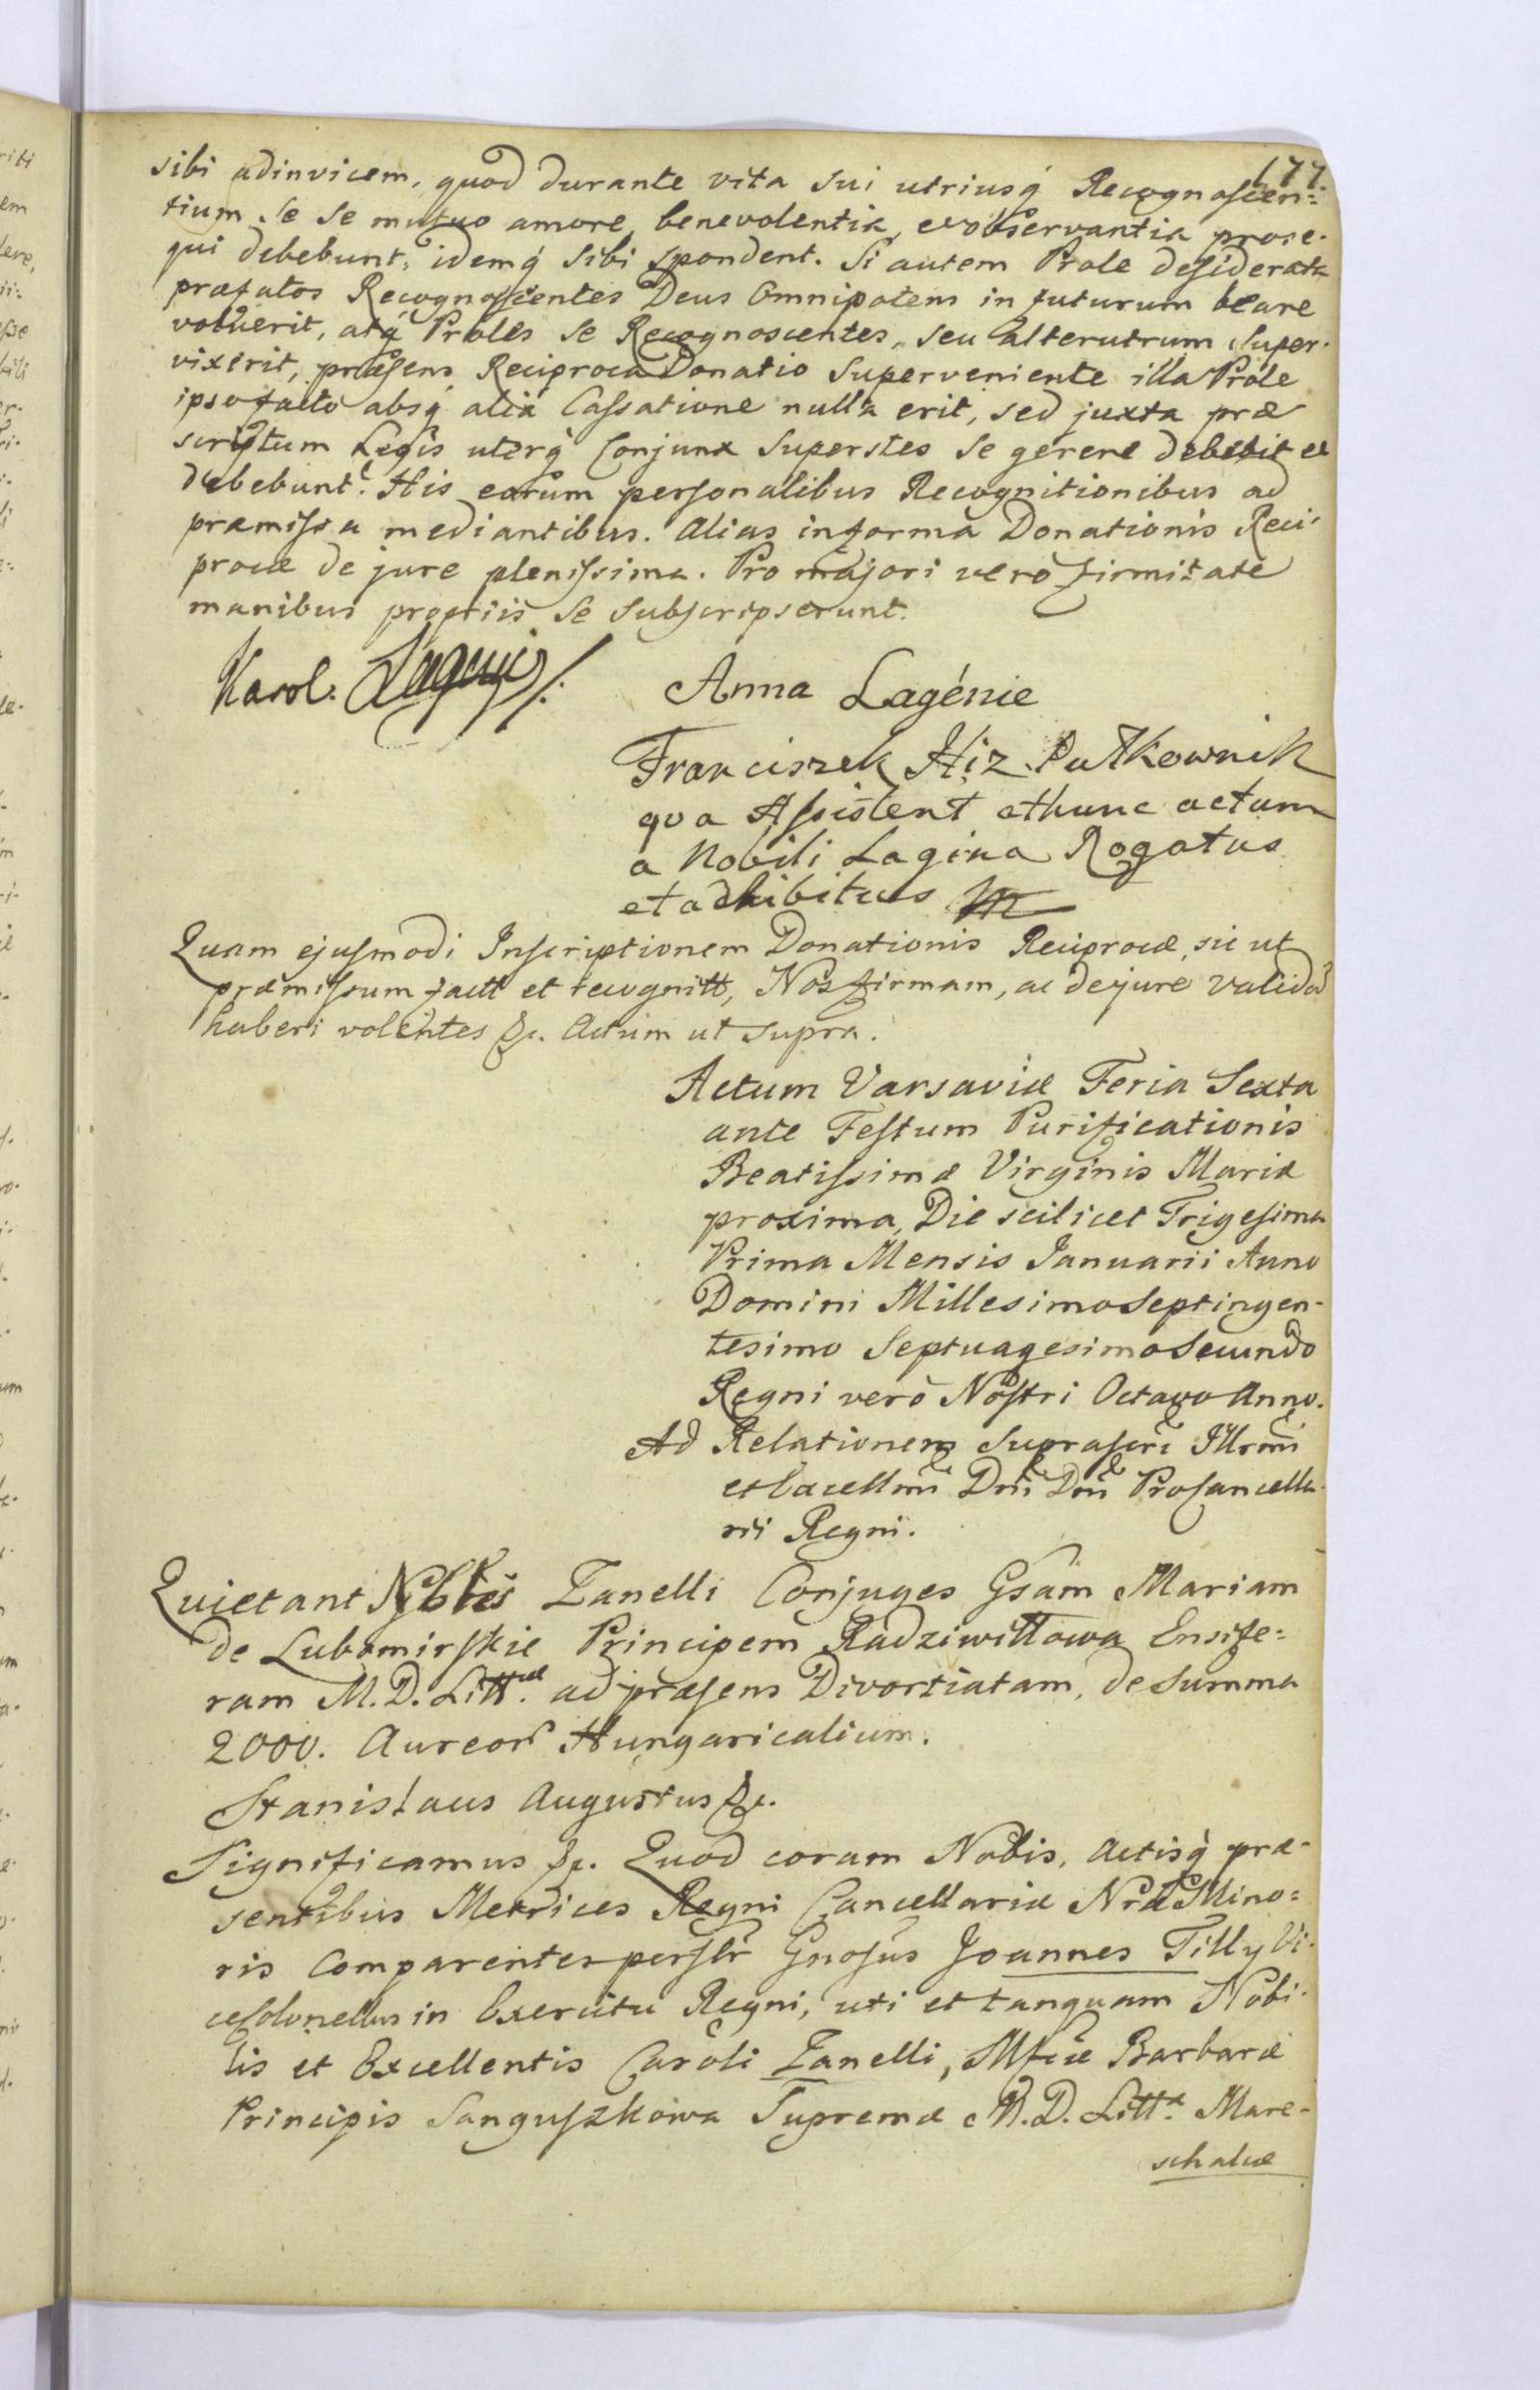 177
sibi adinvicem, quod durante vita sui utriusq́ Recognoscen=
tium se se mutuo amore, benevolentia, et observantia prose-
qui debebunt, idemq́ sibi spondent. Si autem Prole desiderata
præfatos Recognoscentes Deus Omnipotens in futurum beare
voluerit, atq́ Proles se Recognoscentes, seu alterutrum super-
vixerit, præsens Reciproca Donatio superveniente illa Prole
ipso facto absq́ alia Cassatione nulla erit, sed juxta præ
scriptum Legis uterq́ Conjunx superstes se gerere debebit et
debebunt. His eorum personalibus Recognitionibus ad
præmissa mediantibus. Alias in forma Donationis Reci-
procæ de jure plenissima. Pro majori vero firmitate
manibus propriis se subscripserunt.
Karol. Lagenie
Anna Lagénie
Franciszek Hiz Pułkownik
qua Assistent ethunc actum
a Nobili Lagina Rogatus
et adhibitus
Quam ejusmodi Inscriptionem Donationis Reciprocæ, sic ut
præmissum factt et recognitt, Nos firmam, ac de jure validã
haberi volentes &c. Actum ut supra.
Actum Varsaviæ Feria Sexta
ante Festum Purificationis
Beatissimæ Virginis Mariæ
proxima, Die scilicet Trigesima
Prima Mensis Januarii Anno
Domini Millesimo Septingen-
tesimo Septuagesimo Secundo
Regni vero Nostri Octavo Anno.
Ad Relationem suprascri Illrmi
et Excellmi Dni Dni Procancella-
rii Regni.
Quietant Nobles Zanelli Conjuges Gsam Mariam
de Lubomirskie Principem Radziwiłłowa Ensife=
ram M. D. Litt.æ ad præsens Divortiatam, de summa
2000. Aureor Hungaricalium.
Stanislaus Augustus &c.
Significamus &c. Quod coram Nobis, Actisq́ præ-
sentibus Metrices Regni Cancellariæ Nræ Mino=
ris Comparentes perslr Gnosus Joannes Tilly Vi-
ceColonellus in Exercitu Regni, uti et tanquam Nobi-
lis et Excellentis Caroli Zanelli, Mfcæ Barbaræ
Principis Sanguszkowa Supremæ M. D. Litt.æ Mare-
schalcæ